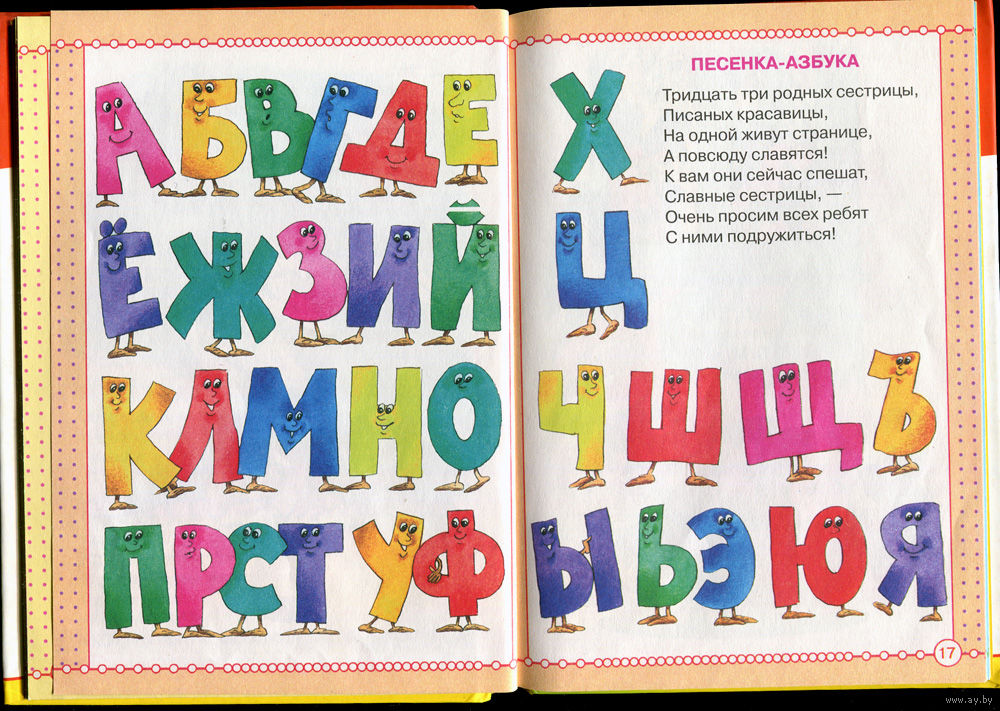 АБВГДЕ
ЁЖЗИЙ
КЛМНО
ПРСТУФ
ПЕСЕНКА-АЗБУКА
Тридцать три родных сестрицы,
Писаных красавицы,
На одной живут странице,
А повсюду славятся!
К вам они сейчас спешат,
Славные сестрицы, —
Очень просим всех ребят
С ними подружиться!
Х
Ц
ЧШЩЪ
ЫЬЭЮЯ
17
www.ay.by